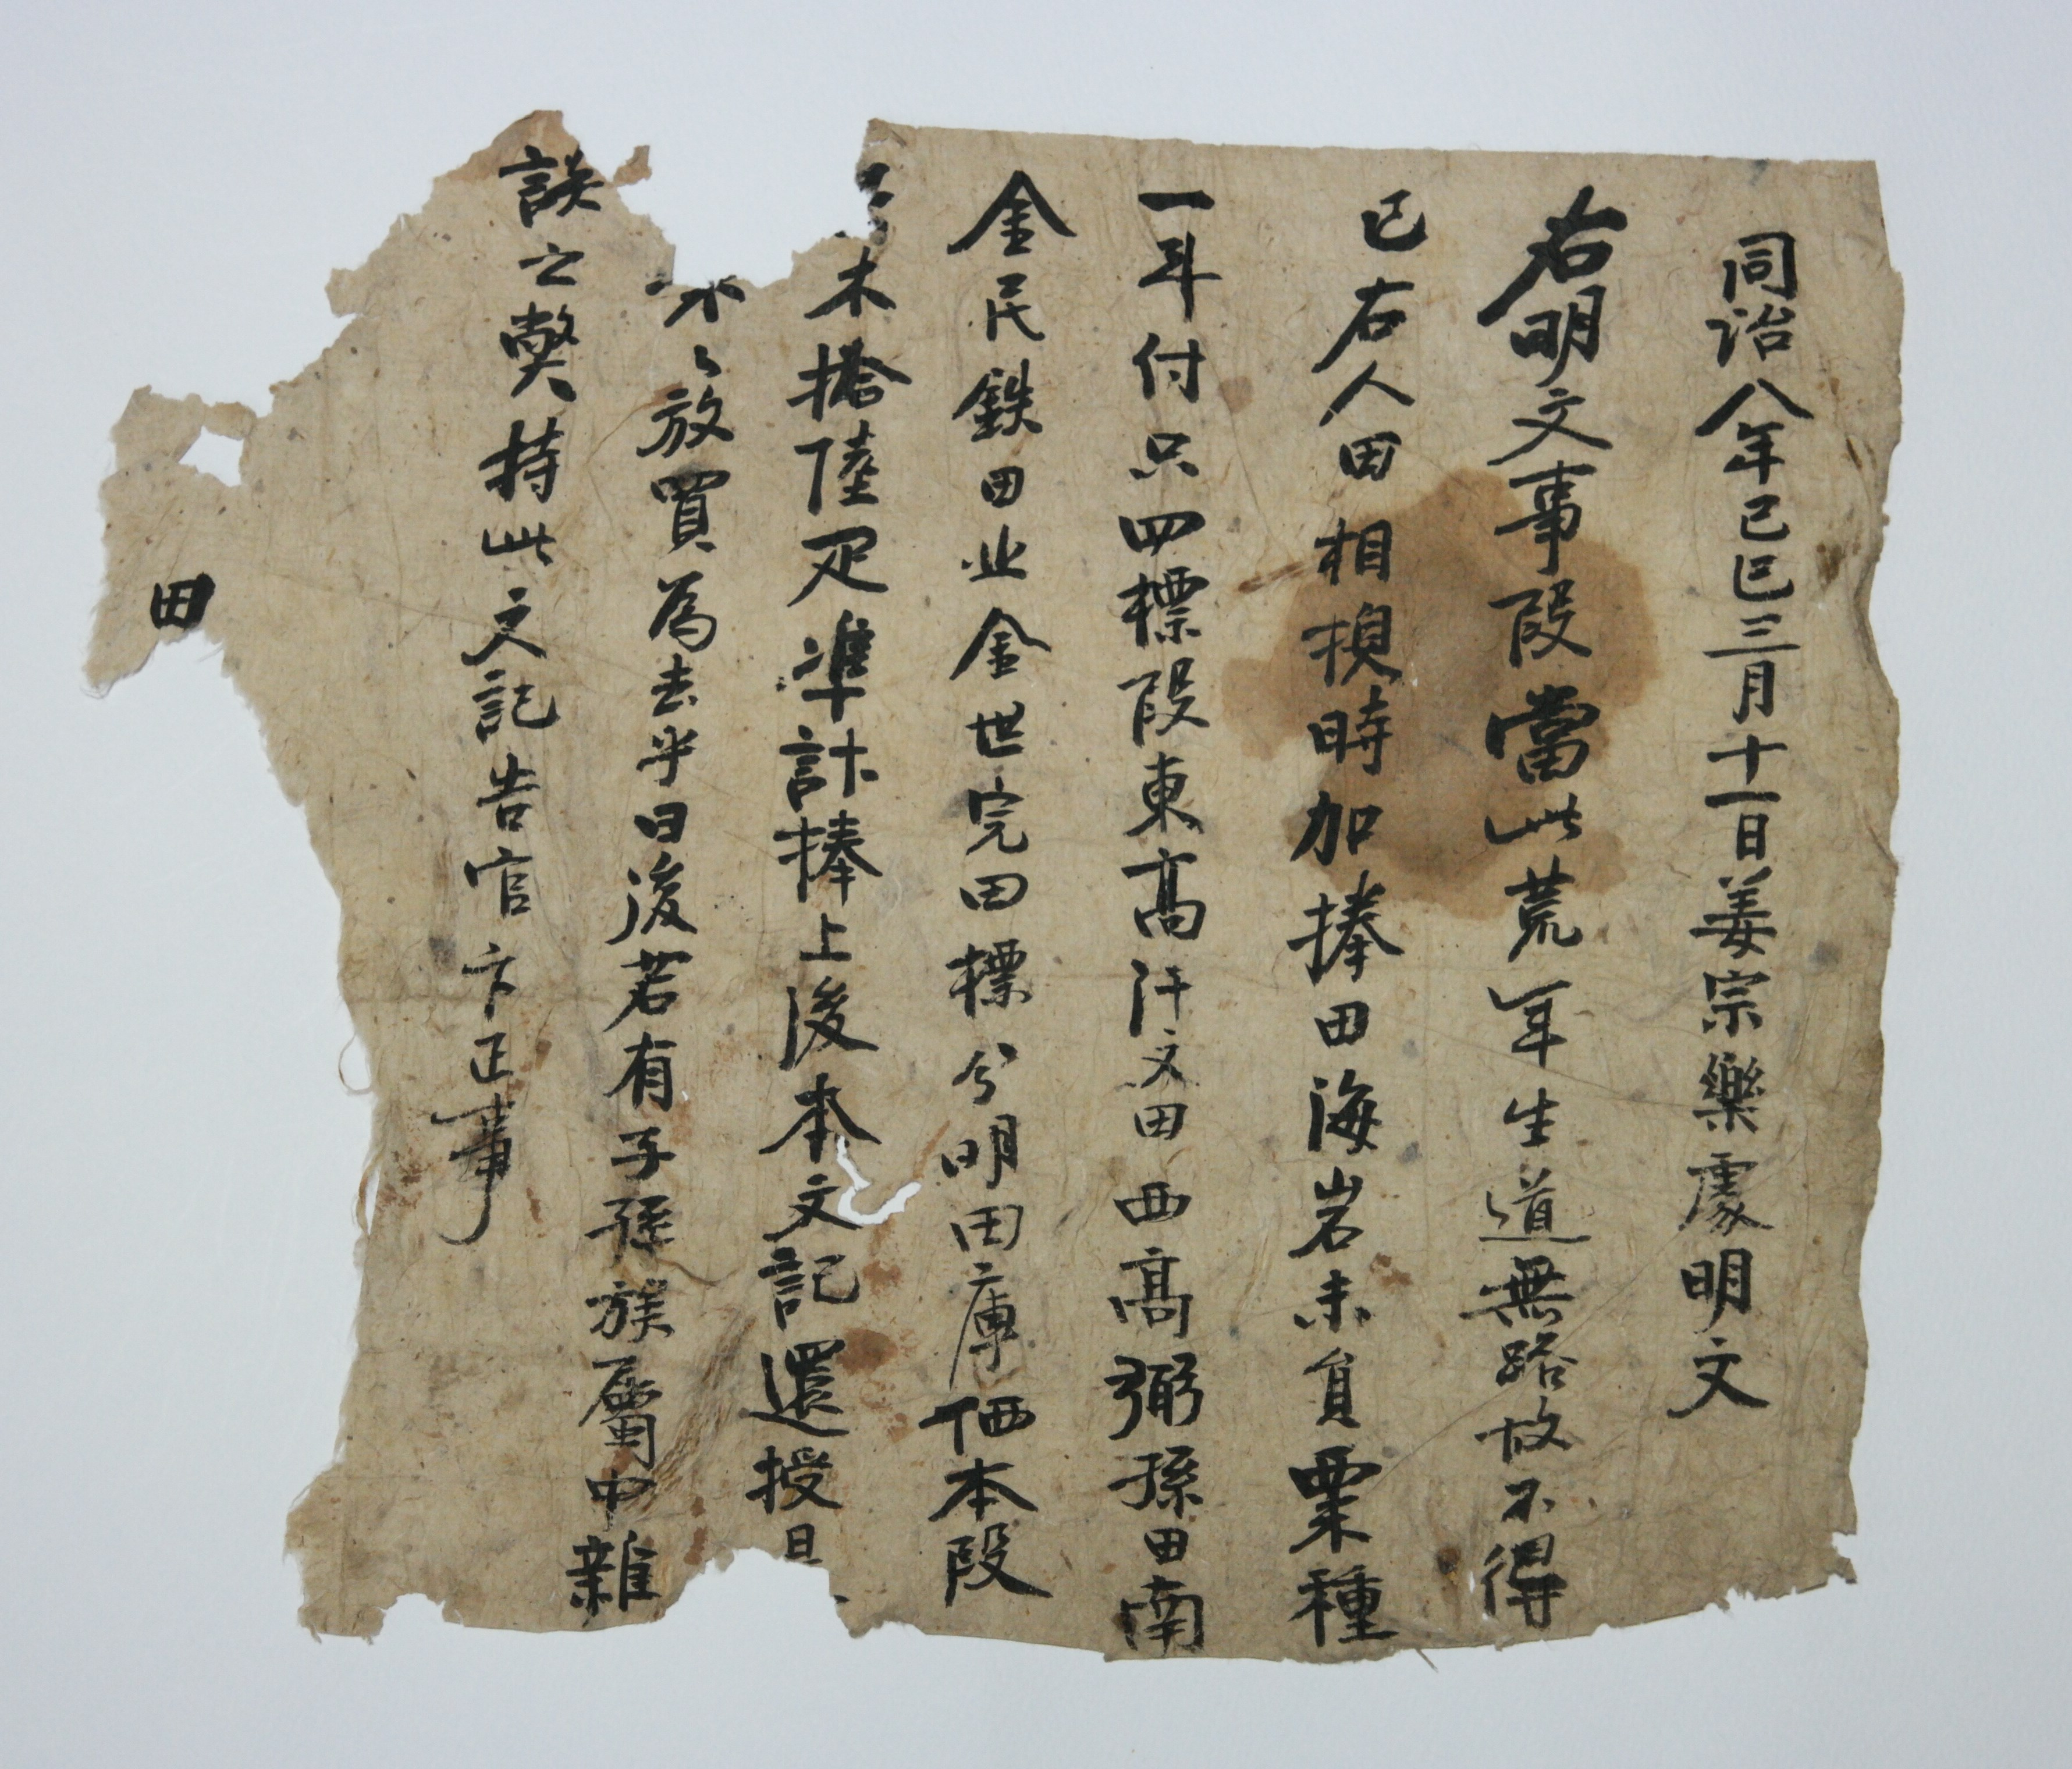 同治八年己巳三月十一日姜宗樂處明文
右明文事段當此荒年生道無路故不得
已右人田相換時加捧田海岩未負粟種
一斗付只四標段東高汗文田西高弼孫田南
金民鉄田北金世完田標分明田庫価本段
木拾陸疋準計捧上後本文記還授日
永〻放買為去乎日後若有子孫族屬中雜
談之弊持此文記告官卞正事
田